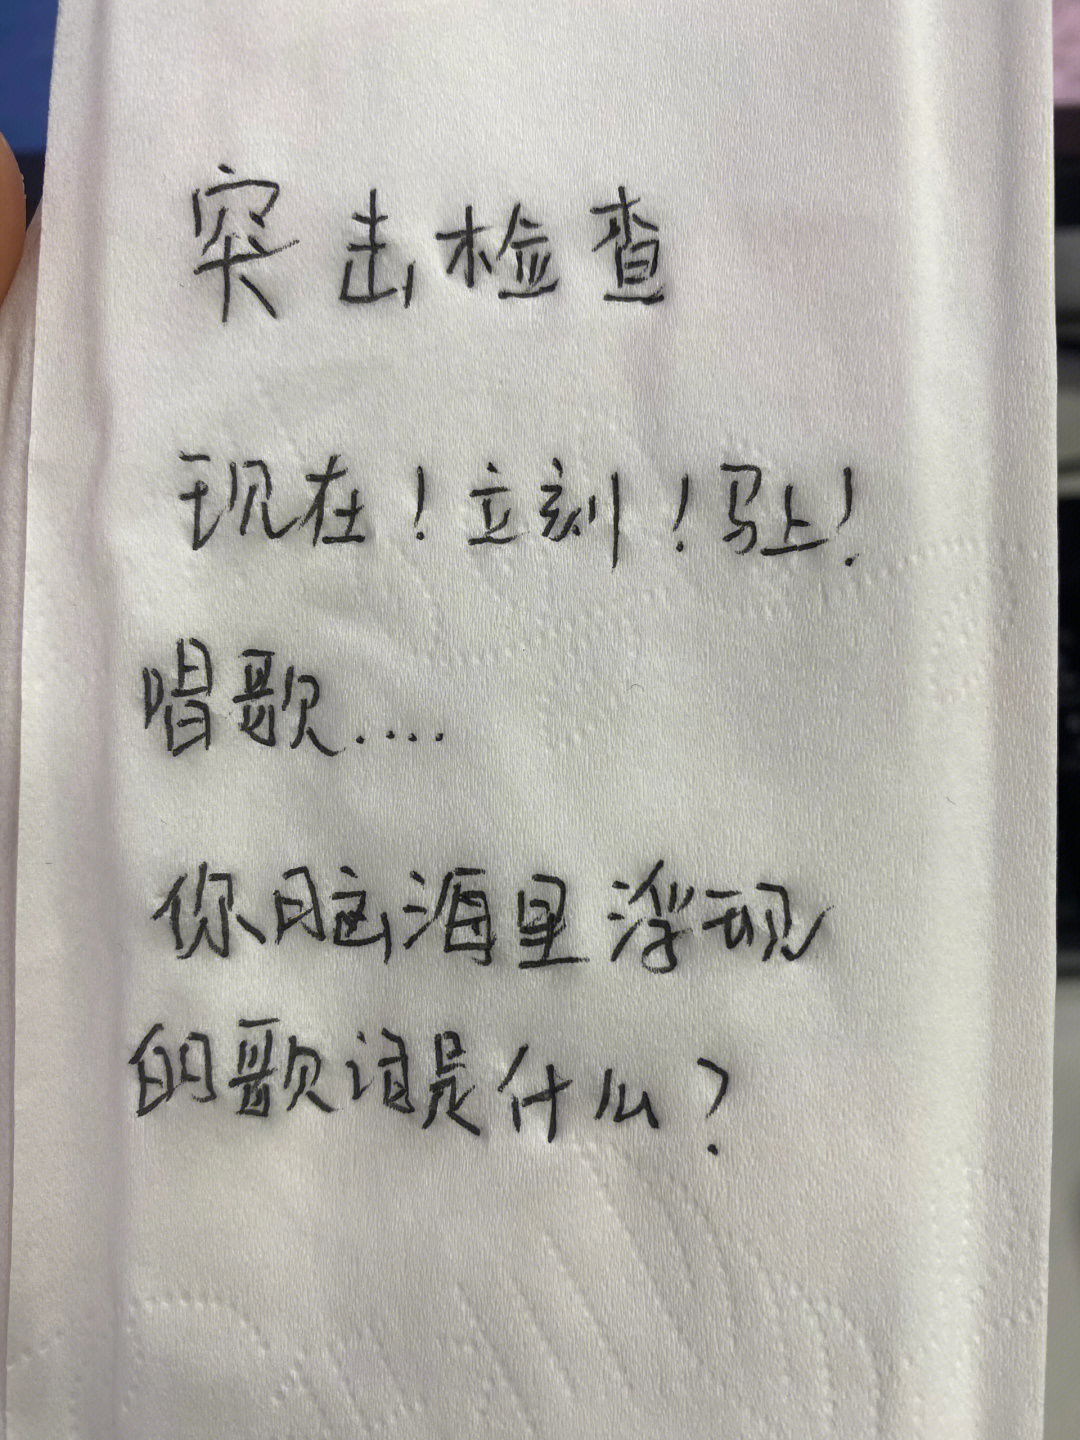 突击检查
现在！立刻！马上！
唱歌....
你脑海里浮现
的歌词是什么？